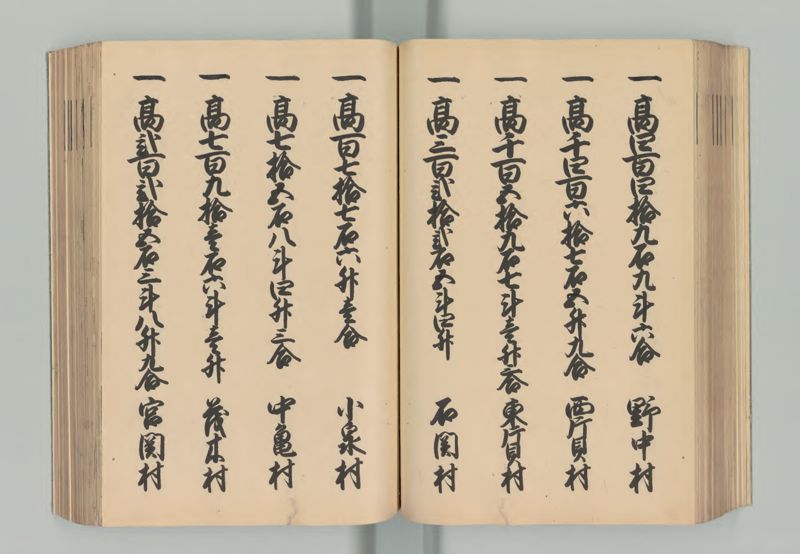 一高四百四拾九石九斗六合 野中村
一高千四百六拾七石五升九合 西片貝村
一高千百五拾九石七斗壱升二合 東片貝村
一高三百弐拾弐石五斗四升 石関村
一高百七拾七石六升壱合 小泉村
一高七拾五石八斗四升三合 中亀村
一高七百九拾壱石六斗壱升 茂木村
一高弐百弐拾五石三斗八升九合 宮関村